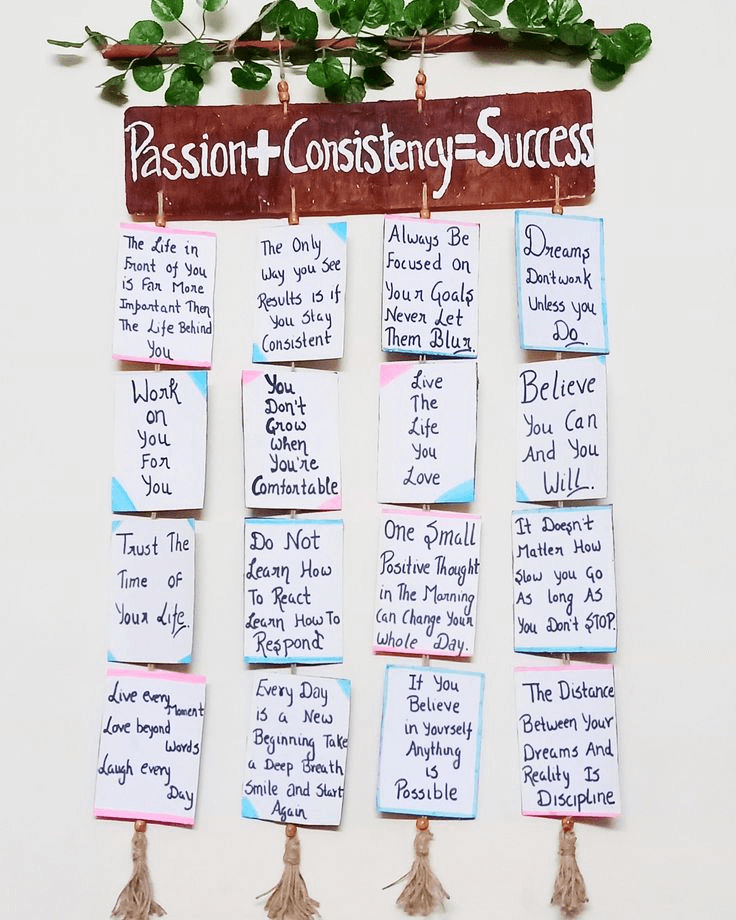 Passion+Consistency=Success
The Life in
Front of You
is Far More
Important Then
The Life Behind
You
The Only
Way you See
Results is if
You Stay
Consistent
Always Be
Focused On
Your Goals
Never Let
Them Blur.
Dreams
Don't work
Unless you
Do.
Work
on
You
For
You
You
Don't
Grow
When
You're
Comfortable
Live
The
Life
You
Love
Believe
You Can
And You
Will.
Trust The
Time of
Your Life.
Do Not
Learn How
To React
Learn How To
Respond
One Small
Positive Thought
in The Morning
Can Change Your
Whole Day.
It Doesn't
Matter How
Slow you Go
As long As
You Don't STOP.
Live every
Moment
Love beyond
Words
Laugh every
Day
Every Day
is a New
Beginning Take
a Deep Breath
Smile and Start
Again
If You
Believe
in Yourself
Anything
is
Possible
The Distance
Between Your
Dreams And
Reality Is
Discipline